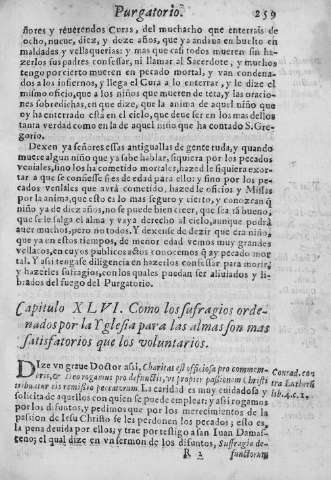 Purgatorio. 259
ñores y reuerendos Curas, del muchacho que enterrais de
ocho, nueue, diez, y doze años, que ya andaua en bucho en
maldades y vellaquerias: y mas que casi todos mueren sin ha-
zerlos sus padres confessar, ni llamar al Sacerdote, y muchos
tengo por cierto mueren en pecado mortal, y van condena-
dos a los infiernos, y llega el Cura a lo enterrar, y le dize el
mismo oficio, que a los niños que mueren de teta, y las oracio-
nes sobredichas, en que dize, que la anima de aquel niño que
oy ha enterrado està en el cielo, que deue ser en los mas dellos
tanta verdad como en la de aquel niño que ha contado S. Gre-
gorio.
Dexen ya señores essas antiguallas de gente ruda, y quando
muere algun niño que ya sabe hablar, siquiera por los pecados
veniales, sino los ha cometido mortales, hazedle siquiera exor-
tar a que se confiesse si es de edad para ello; y sino por los pe-
cados veniales que avrà cometido, hazedle oficios y Missas
por la anima, que esto es lo mas seguro y cierto, y conozcan q̃
niño ya de diez años, no se puede bien creer, que sea tã bueno,
que se le salga el alma y vaya derecho al cielo, aunque podrà
auer muchos, pero no todos. Y dexense de dezir que era niño,
que ya en estos tiempos, de menor edad vemos muy grandes
vellacos, en cuyos publicos actos conocemos q̃ ay pecado mor
tal. Y assi tengase diligencia en hazerlos confessar para morir,
y hazerles sufragios, con los quales puedan ser aliuiados y li-
brados del fuego del Purgatorio.
Capitulo XLVI. Como los sufragios orde-
nados por la Yglesia para las almas son mas
satisfatorios que los voluntarios.
DIze vn graue Doctor assi, Charitas est officiosa pro commem-
oris, & Deo rogamus pro defunctis, vt propter passionem Christi
tribuatur eis remissio peccatorum. La caridad es muy cuidadosa y
solicita de aquellos con quien se puede emplear: y assi rogamos
por los difuntos, y pedimos que por los merecimientos de la
passion de Iesu Christo se les perdonen los pecados; esto es,
la pena deuida por ellos; y trae por testigo a san Iuan Damas-
ceno; el qual dize en vn sermon de los difuntos, Suffragio de-
R 2 functorum
Conrad. con
tra Lutherũ
lib. 4. c. 1.